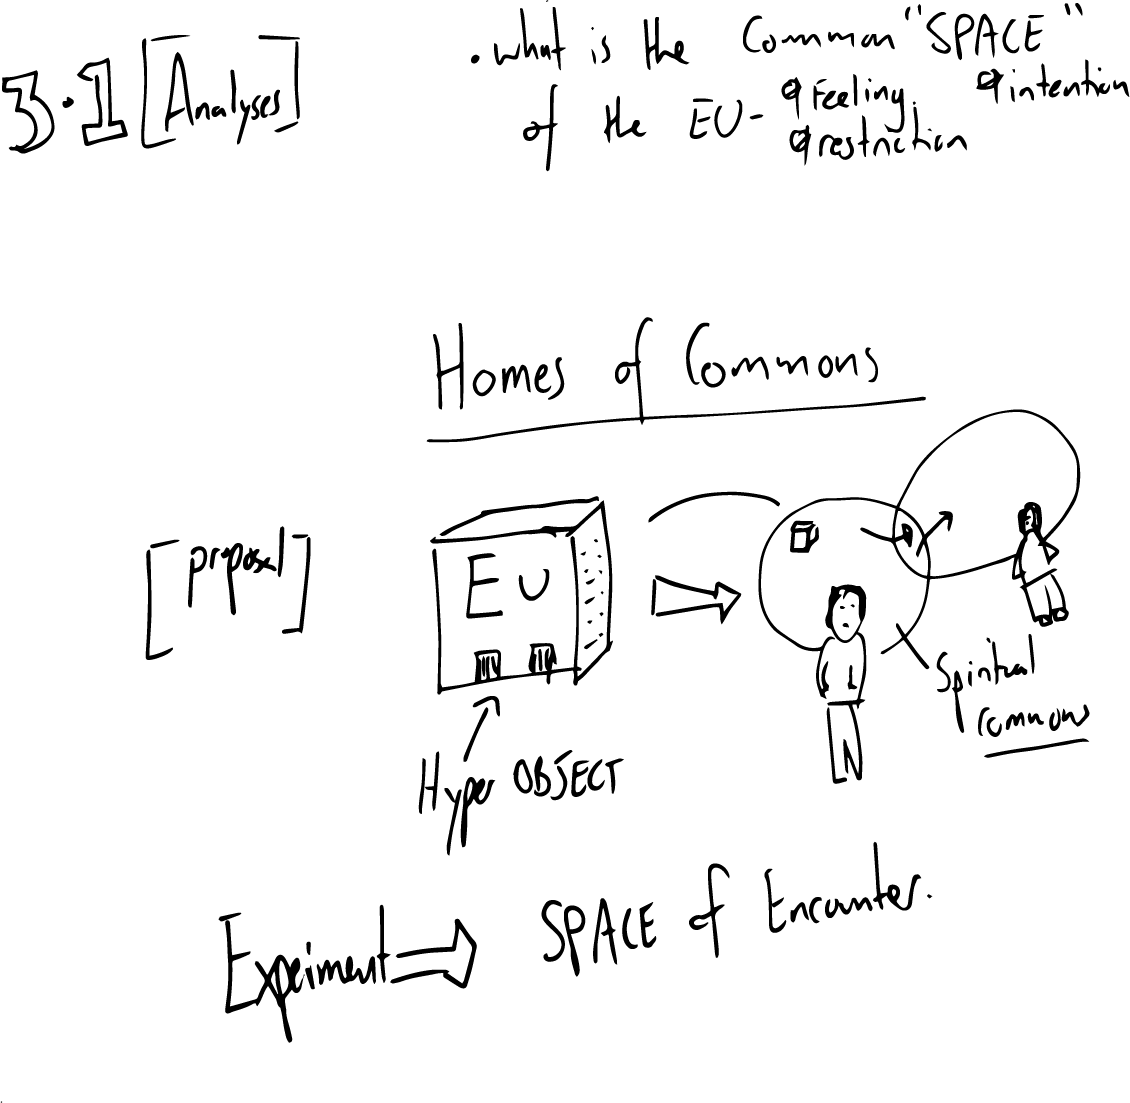 3.1 [Analyses]
. what is the Common "SPACE"
of the EU - Feeling. intention
restriction
Homes of Commons
[proposal]
EU
Spiritual
Commons
Hyper OBJECT
Expeiment ⇒ SPACE of Encounter.